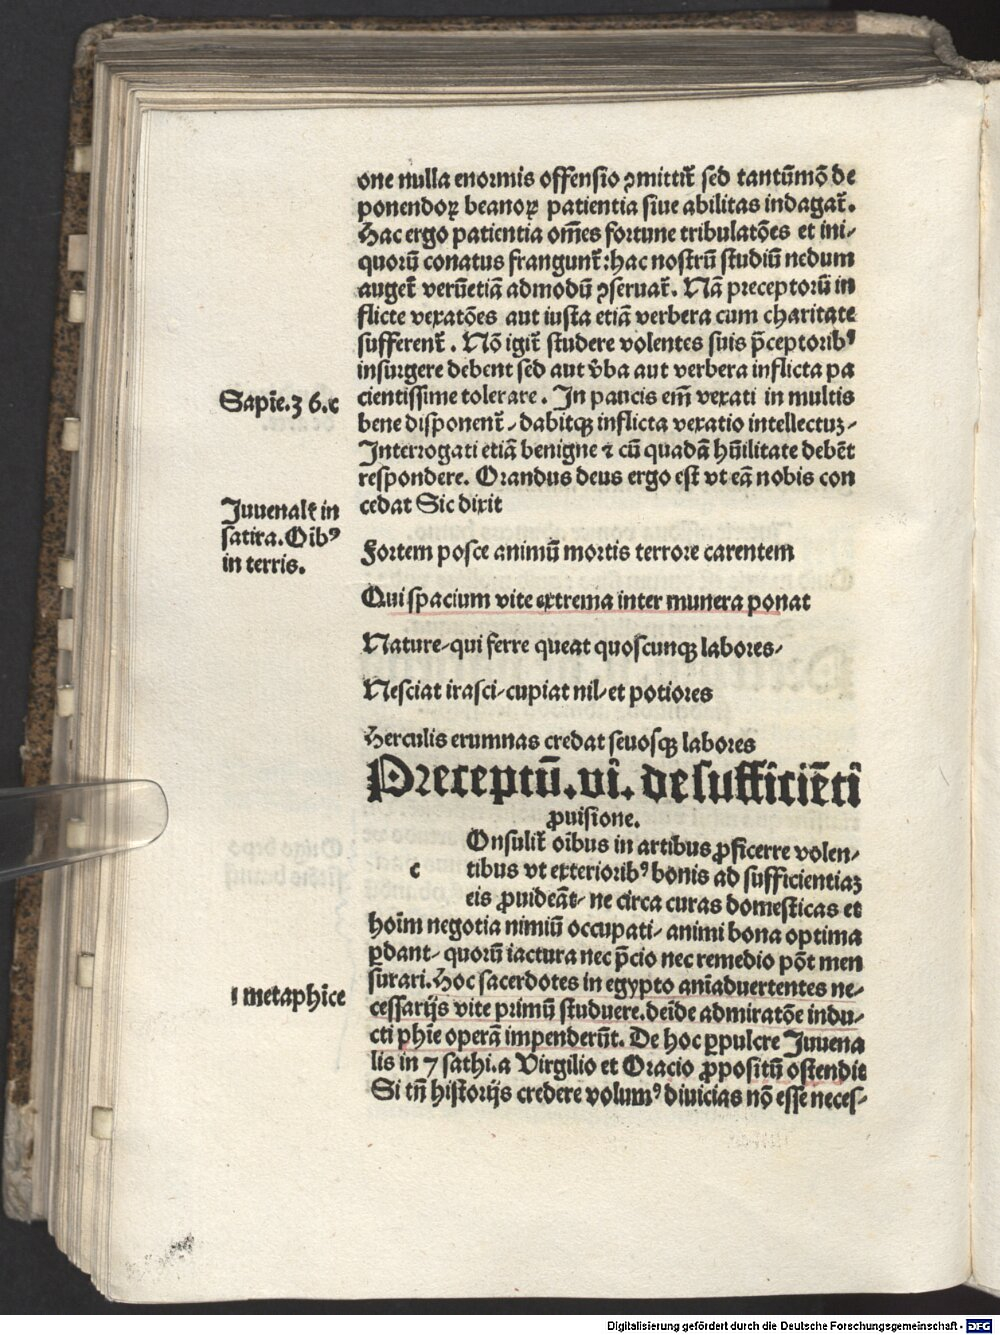 one nulla enormis offensio ꝯmittit᷑ sed tantūmō de
ponendoꝝ beanoꝝ patientia siue abilitas indagat᷑.
Hac ergo patientia om̄es fortune tribulatōes et ini-
quorū conatus frangunt᷑: hac nostrū studiū nedum
auget᷑ verūetiā admodū ꝯseruat᷑. Nā preceptorū in
flicte vexatōes aut iusta etiā verbera cum charitate
sufferent᷑. Nō igit᷑ studere volentes suis p̄ceptoribꝰ
insurgere debent sed aut v̄ba aut verbera inflicta pa
Sapiē. 3 6. c
cientissime tolerare. In paucis em̄ vexati in multis
bene disponent᷑, dabitqꝫ inflicta vexatio intellectuꝫ,
Interrogati etiā benigne ⁊ cū quadā hūilitate debēt
respondere. Orandus deus ergo est vt eā nobis con
cedat Sic dixit
Juuenal᷑ in
satira. Oībꝰ
in terris.
Fortem posce animū mortis terrore carentem
Qui spacium vite extrema inter munera ponat
Nature, qui ferre queat quoscunqꝫ labores,
Nesciat irasci, cupiat nil, et potiores
Herculis erumnas credat seuosqꝫ labores
Preceptū. vi. de sufficiēti
ꝓuisione.
c Onsulit᷑ oībus in artibus ꝓficerre volen-
tibus vt exterioribꝰ bonis ad sufficientiaꝫ
eis ꝓuideāt, ne circa curas domesticas et
hoīm negotia nimiū occupati, animi bona optima
ꝑdant, quorū iactura nec p̄cio nec remedio pōt men
surari. Hoc sacerdotes in egypto aīaduertentes ne-
1 metaphīce
cessarijs vite primū studuere. deīde admiratōe indu-
cti phīe operā impenderūt. De hoc ꝑpulcre Juuena
lis in 7 sathi. a Virgilio et Oracio ꝓpositū ostendit
Si tn̄ historijs credere volumꝰ diuicias nō esse neces-
Digitalisierung gefördert durch die Deutsche Forschungsgemeinschaft - DFG